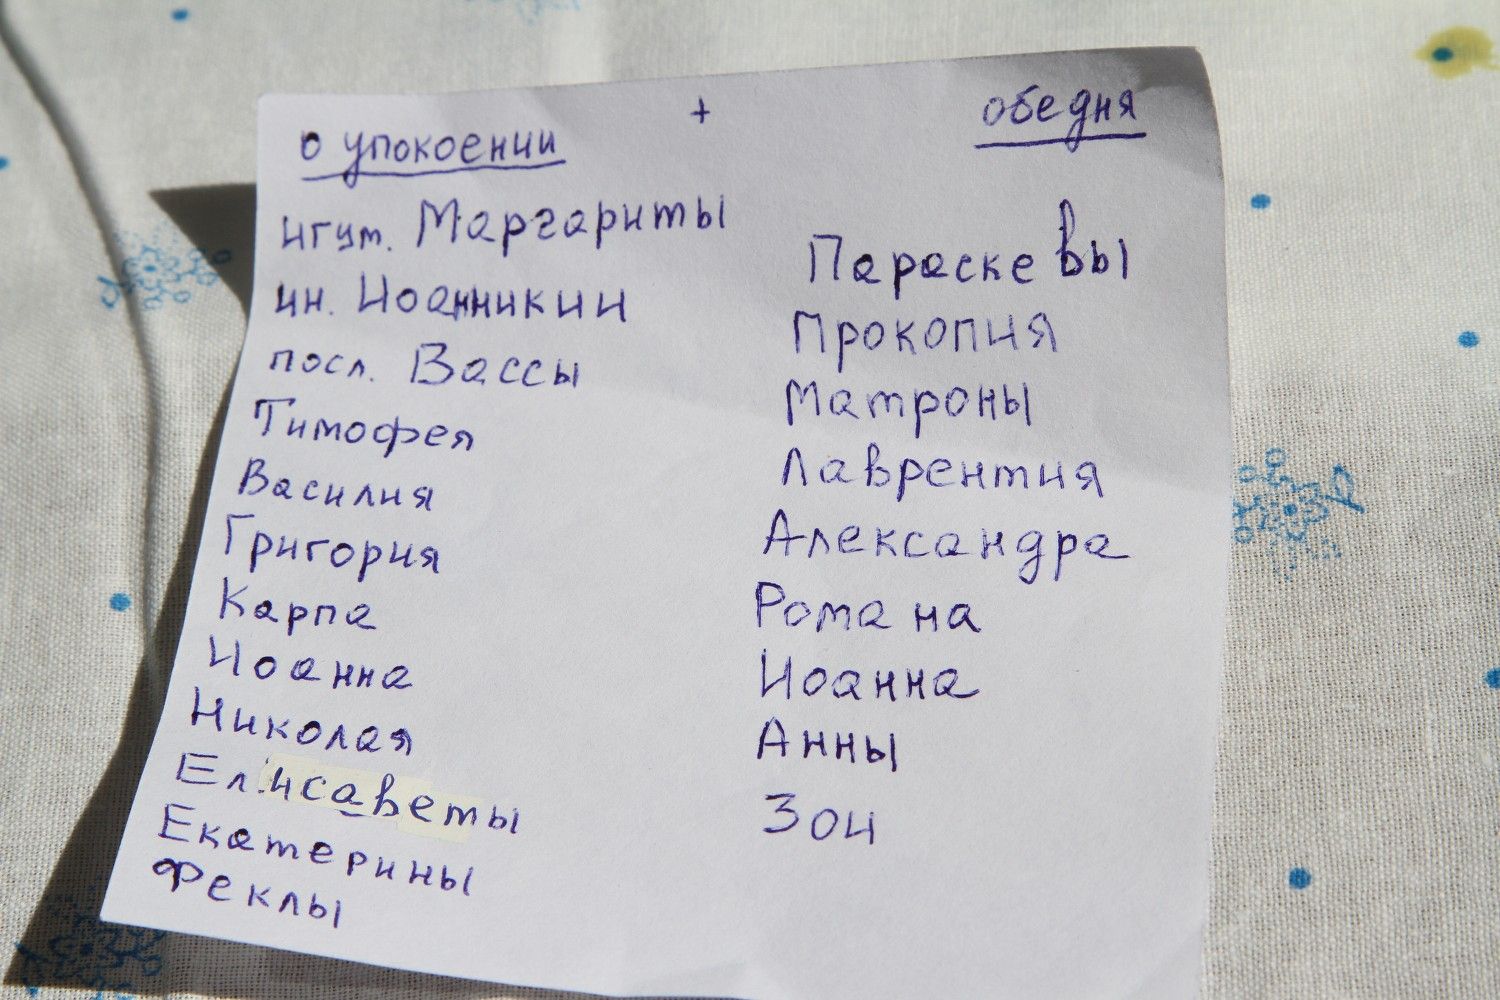 +
обедня
о упокоении
игум. Маргариты
ин. Иоанникии
посл. Вассы
Тимофея
Василия
Григория
Карпа
Иоанна
Николая
Елисаветы
Екатерины
Феклы
Параскевы
Прокопия
Матроны
Лаврентия
Александра
Романа
Иоанна
Анны
Зои